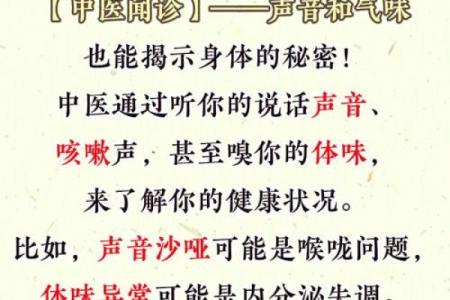 【中医闻诊】——声音和气味
也能揭示身体的秘密！
中医通过听你的说话声音、
咳嗽声，甚至嗅你的体味，
来了解你的健康状况。
比如，声音沙哑可能是喉咙问题，
体味异常可能是内分泌失调。